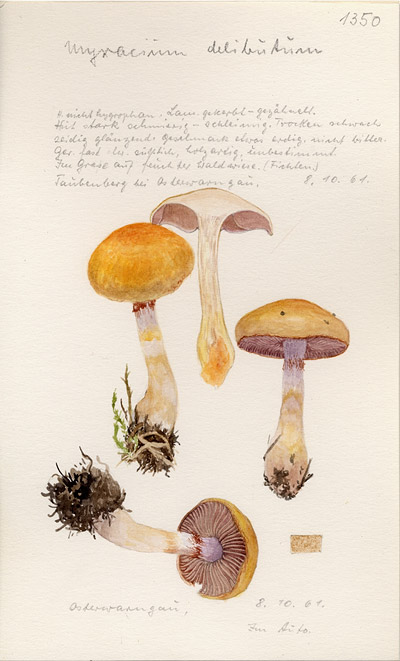 1350
Myxacium delibutum
nicht hygrophan. Lam. gekerbt-gezähnelt.
Hut stark schmierig-schleimig. Trocken schwach
seidig glänzend. Geschmack etwas erdig, nicht bitter.
Ger. fast 0 süßlich, holzartig, unbestimmt.
Im Grase auf feuchter Waldwiese. (Fichten)
Taubenberg bei Osterwarngau, 8. 10. 61.
Osterwarngau, 8. 10. 61.
Im Auto.